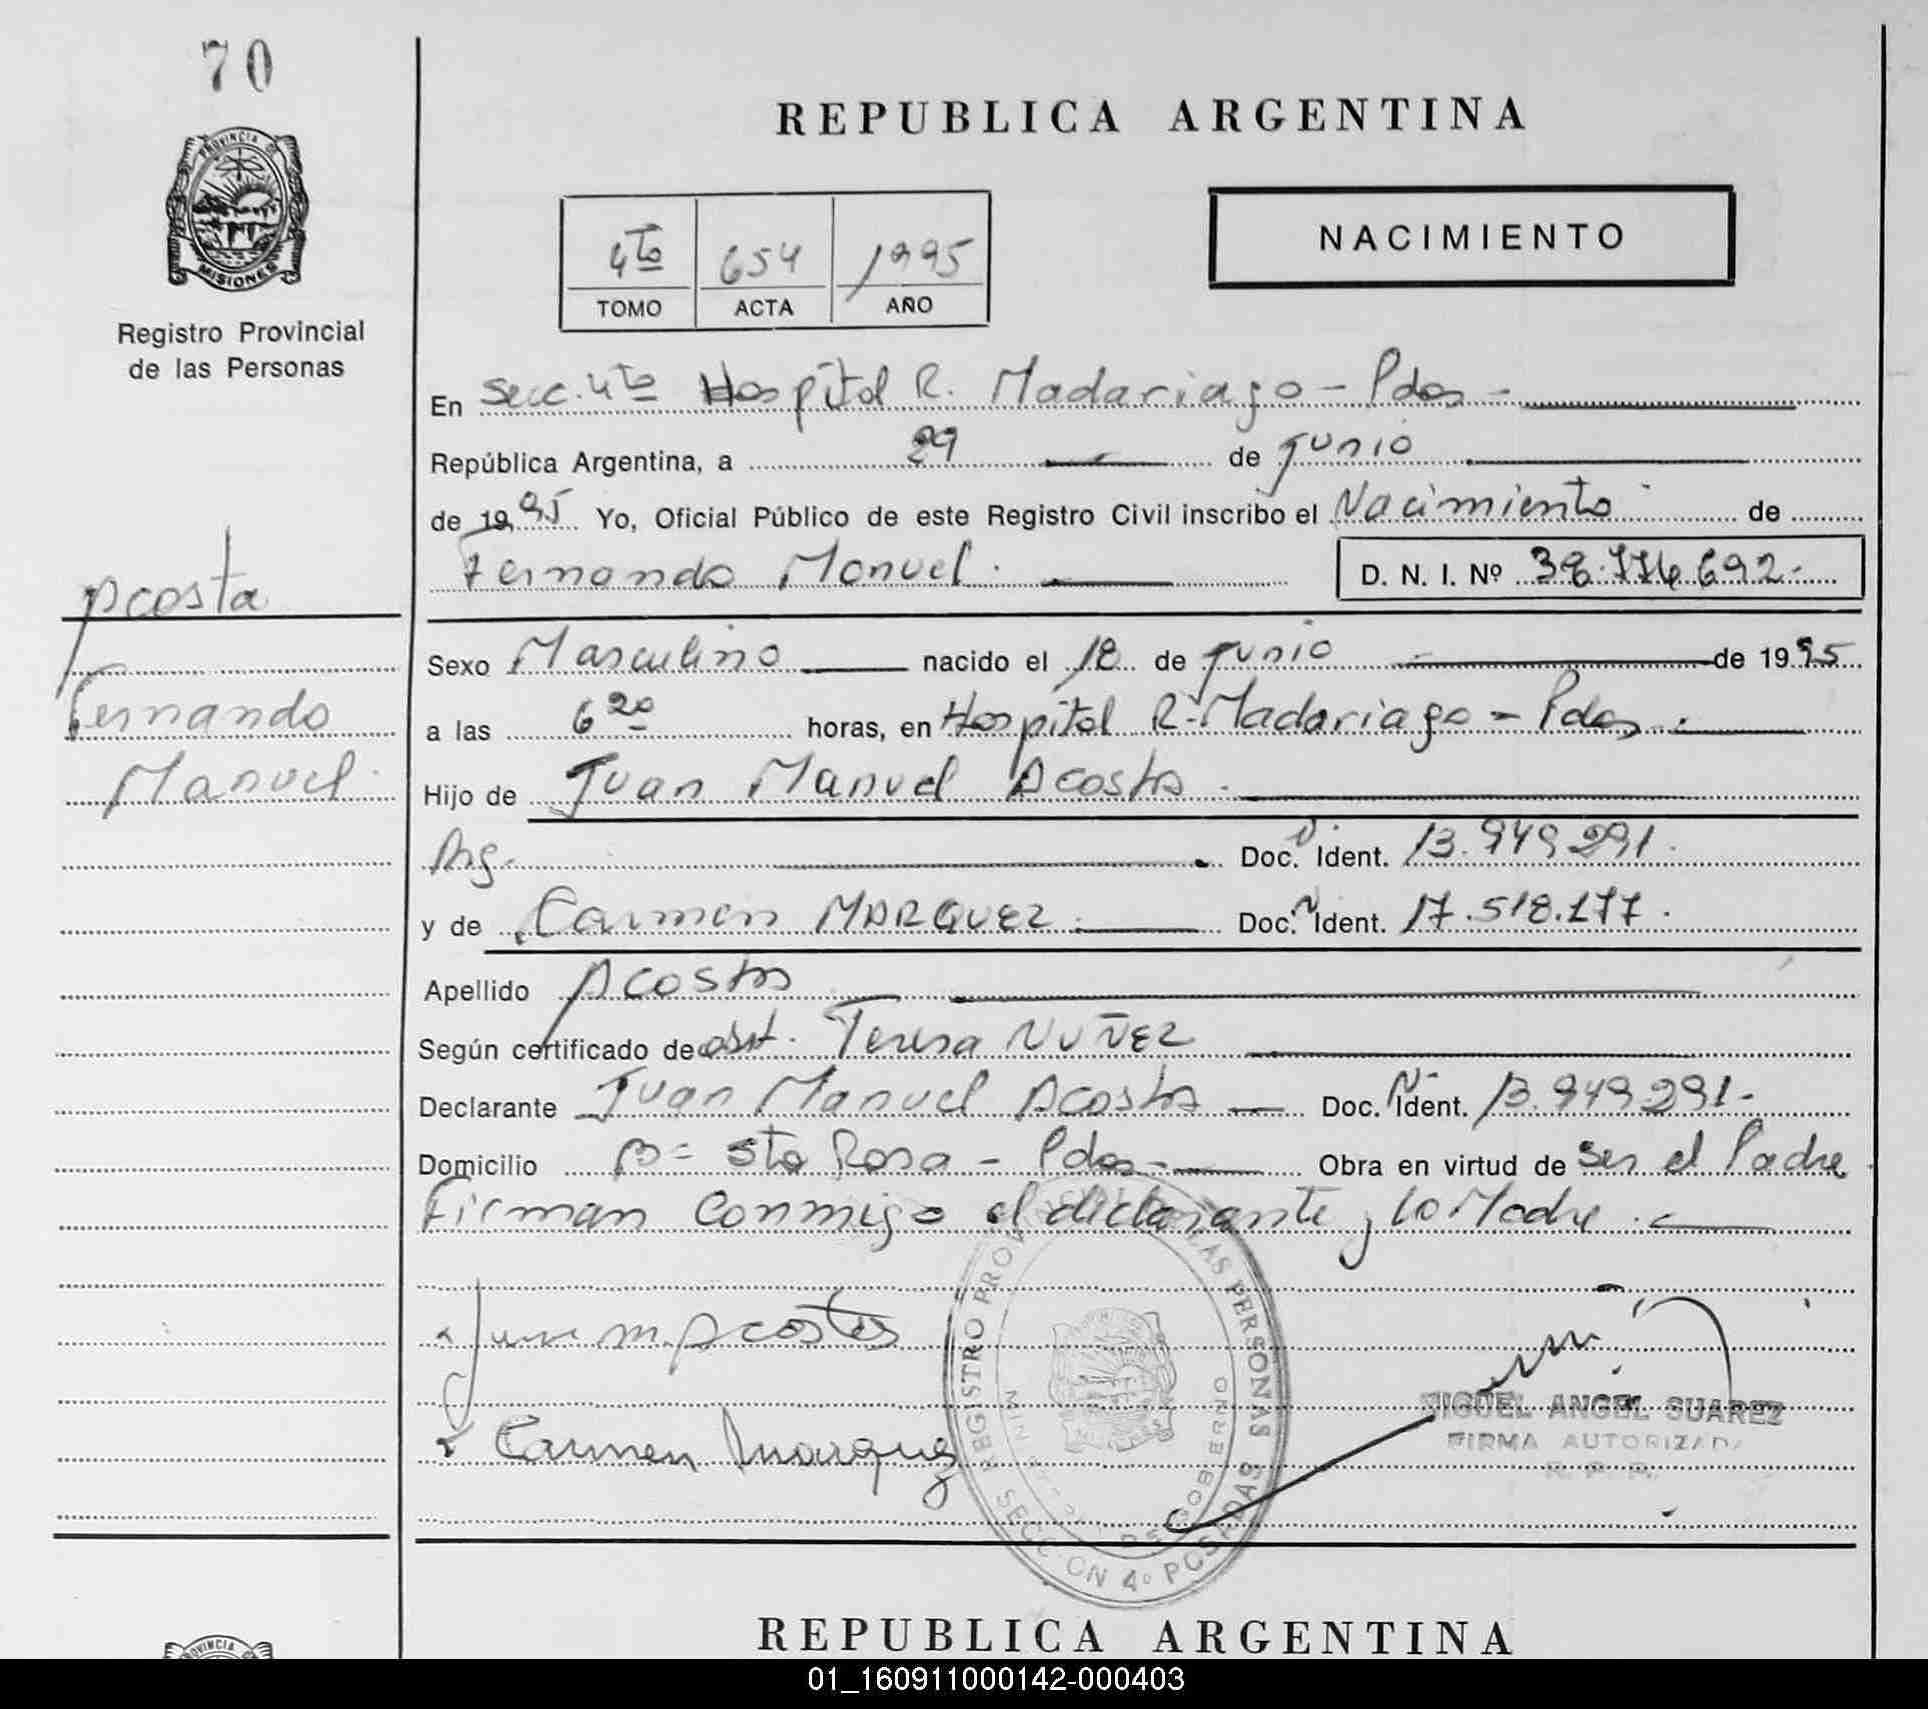 70
REPUBLICA ARGENTINA
PROVINCIA DE
MISIONES
Registro Provincial
de las Personas
4to 654 1995
TOMO ACTA AÑO
NACIMIENTO
En Secc. 4to Hospital R. Madariaga - Pdas -
República Argentina, a 29 de junio
de 1995 Yo, Oficial Público de este Registro Civil inscribo el Nacimiento de
Fernando Manuel. D. N. I. Nº 38.776.692.-
Acosta
Fernando
Manuel.
Sexo Masculino nacido el 18 de junio de 1995
a las 6 20 horas, en Hospital R. Madariaga - Pdas.
Hijo de Juan Manuel Acosta.
Arg. Doc. N. Ident. 13.949.291.
y de Carmen MARQUEZ. Doc. N Ident. 17.518.177.
Apellido Acosta
Según certificado de obst. Teresa NUÑEZ
Declarante Juan Manuel Acosta Doc. N- Ident. 13.949.291.-
Domicilio B= Sta Rosa - Pdas - Obra en virtud de Ser el Padre
Firman Conmigo el declarante y la Madre.
Juan M. Acosta
Carmen Marquez
REGISTRO PROV LAS PERSONAS
SECCION 4º POSADAS
MIN DE GOBIERNO
MIGUEL ANGEL SUAREZ
FIRMA AUTORIZADA
R. P. P.
REPUBLICA ARGENTINA
PROVINCIA
01_160911000142-000403